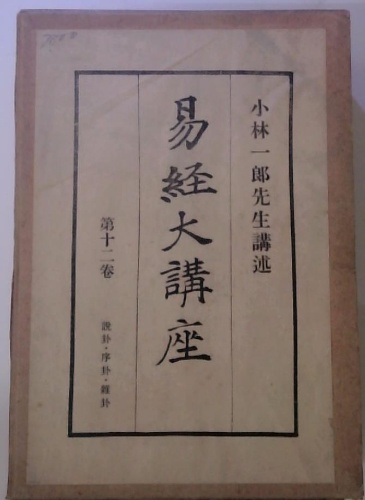 小林一郎先生講述
易経大講座
第十二卷
説卦・序卦・雜卦